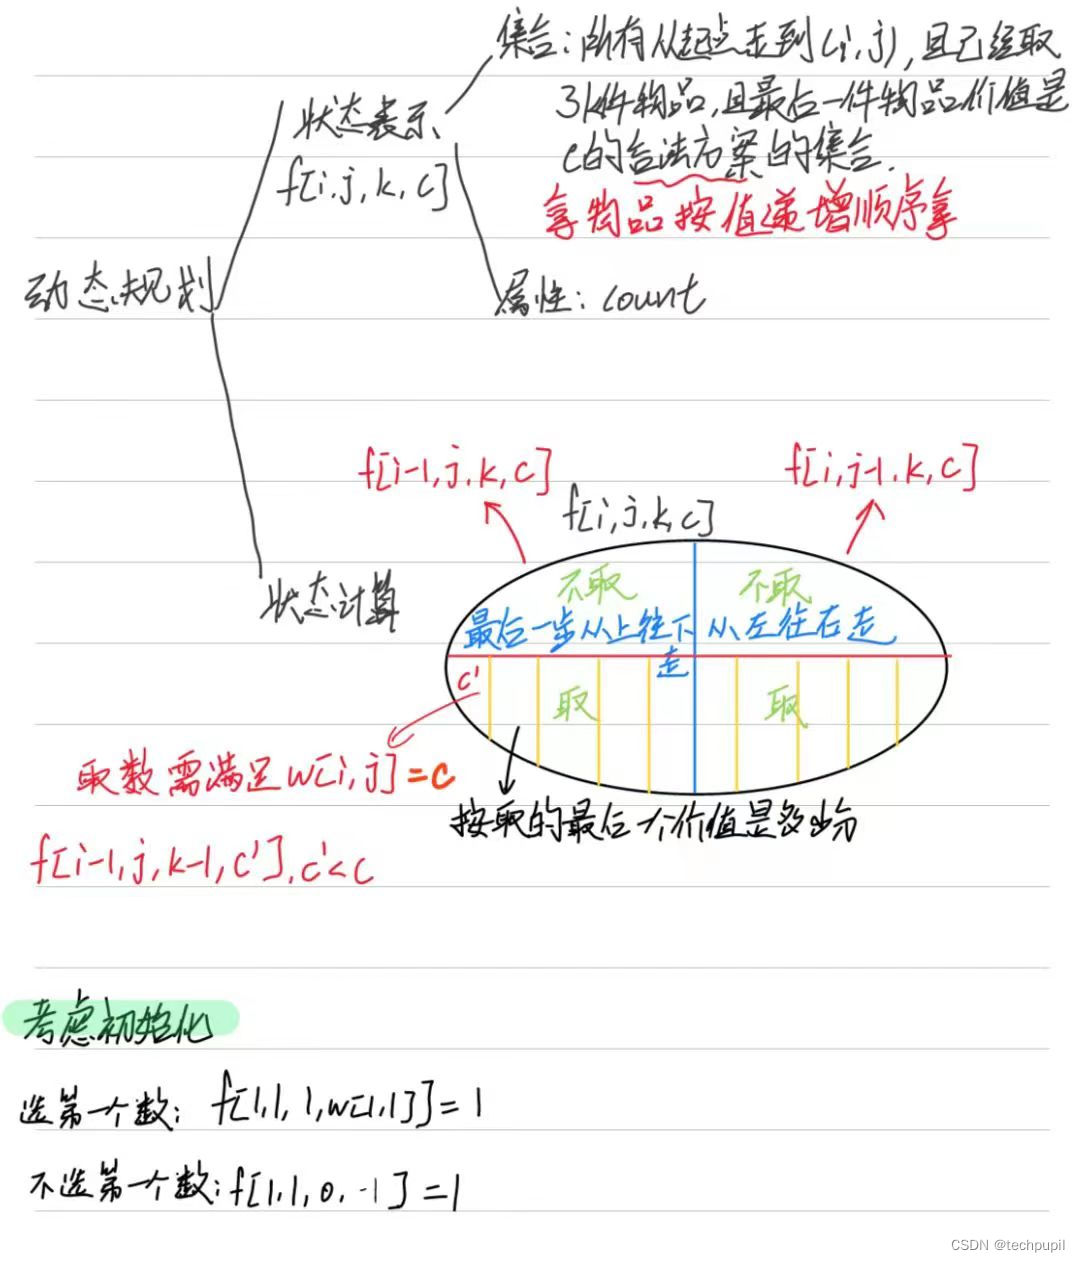 集合：所有从起点走到(i,j),且已经取
3k件物品,且最后一件物品价值是
c的合法方案的集合.
拿物品按值递增顺序拿
状态表示
f[i,j,k,c]
动态规划
属性：count
f[i-1,j,k,c]
f[i,j-1,k,c]
f[i,j,k,c]
不取
不取
状态计算
最后一步从上往下走
从左往右走
c'
取
取
取数需满足w[i,j]=c
按取的最后一个价值是多少分
f[i-1,j,k-1,c'],c'<c
考虑初始化
选第一个数：f[1,1,1,w[1,1]]=1
不选第一个数：f[1,1,0,-1]=1
CSDN @techpupil